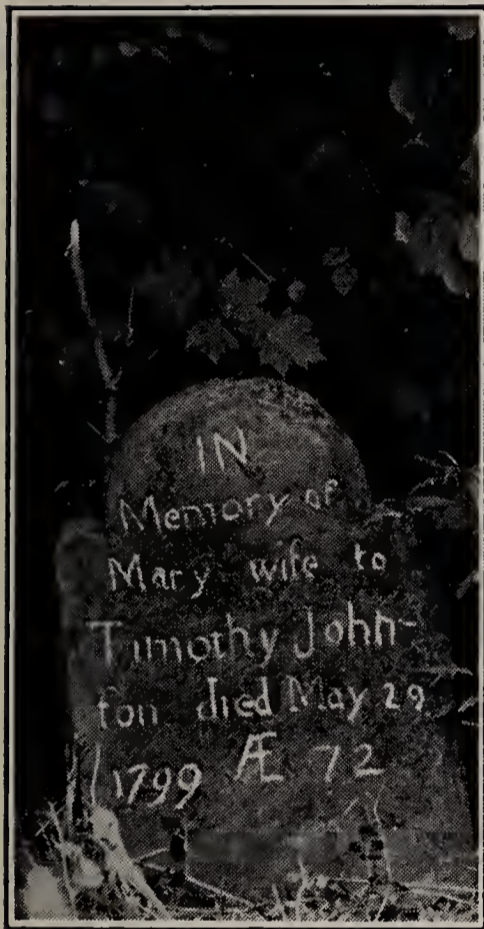 IN
Memory of
Mary wife to
Timothy John-
ſon died May 29
1799 Æ 72